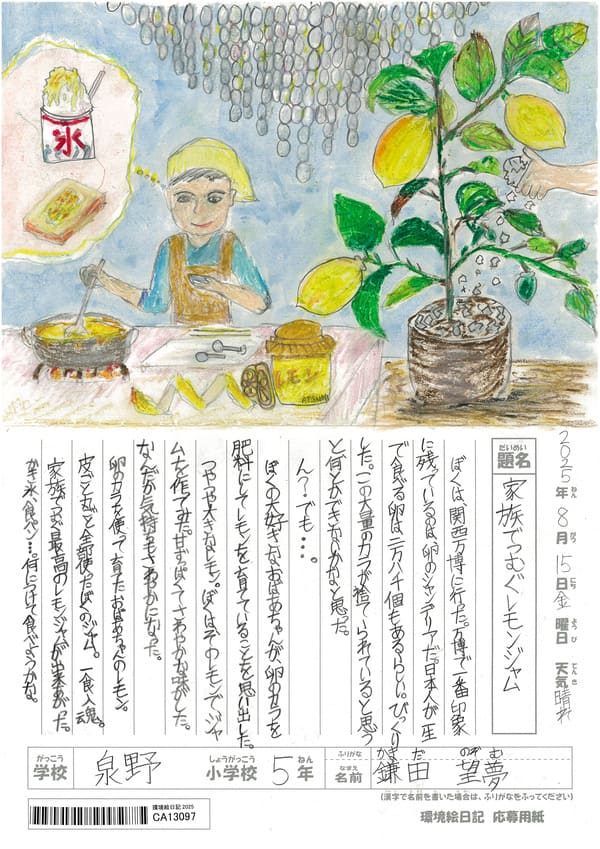 氷
レモン
ATSUMI
2025年 8月 15日 金曜日 天気 晴れ
ねん がつ にち ようび てんき
だいめい
題名 家族でつむぐレモンジャム
ぼくは、関西万博に行った。万博で一番印象
に残っているのは、卵のシャンデリアだ。日本人が一生
で食べる卵は、二万八千個もあるらしい。びっくり
した。この大量のカラが捨てられていると思う
と何とかできないかなと思った。
ん？でも…。
ぼくの大好きなおばあちゃんが、卵のカラを
肥料にしてレモンを育てていることを思い出した。
つやつや大きなレモン。ぼくはそのレモンでジャ
ムを作てみた。甘ずっぱくてさわやかな味がした。
なんだか気持ちもさわやかになった。
卵のカラを使って育てたおばあちゃんのレモン。
皮ごと丸ごと全部使ったぼくのジャム。一食入魂。
家族がつむぐ最高のレモンジャムが出来あがった。
かき氷、食パン…。何につけて食べようかな。
がっこう しょうがっこう ねん ふりがな かま だ のぞ む
学校 泉野 小学校 5年 なまえ 名前 鎌田 望夢
(漢字で名前を書いた場合は、ふりがなをふってください)
環境絵日記 2025
CA13097
環境絵日記 応募用紙